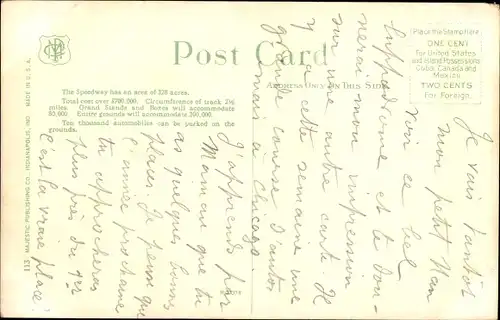 MADE IN U. S. A.
Post Card
Place the Stamp here
ONE CENT
For United States
and Island Possessions
Cuba, Canada and
Mexico
TWO CENTS
For Foreign.
ADDRESS ONLY ON THIS SIDE
The Speedway has an area of 320 acres.
Total cost over $700,000. Circumference of track 2½
miles. Grand Stands and Boxes will accommodate
80,000. Entire grounds will accommodate 200,000.
Ten thousand automobiles can be parked on the
grounds.
113 MAJESTIC PUBLISHING CO., INDIANAPOLIS, IND.
Je vais tantôt
mon petit Nan
voir ce bel
hippodrome et te don-
nerai mon impression
sur une autre carte. Il
y a cette semaine une
grande course d'autos
mais à Chicago.
J'apprends par
Maman que tu
as quelques bonnes
places. Je pense que
l'année prochaine
tu approcheras
plus près du 1er
C'est la vraie place!